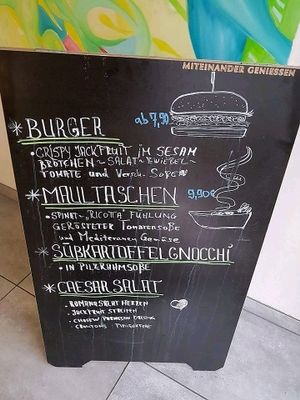 MITEINANDER GENIESSEN
* BURGER ab 7,90
• CRISPY JACKFRUIT IM SESAM
BRÖTCHEN ~ SALAT ~ ZWIEBEL ~
TOMATE und Versch. Soße
* MAULTASCHEN 9,90€
• SPINAT - "RICOTTA" FÜHLUNG
GERÖSTETER Tomatensoße
und Mediteranen Gemüse
* SÜßKARTOFFELGNOCCHI
• IN PILZRAHMSOßE
* CAESAR SALAT
• ROMANA SALAT HERZEN
• JACKFRUIT STREIFEN
• CASHEW / PARMESAN DRESSING
• CROUTONS